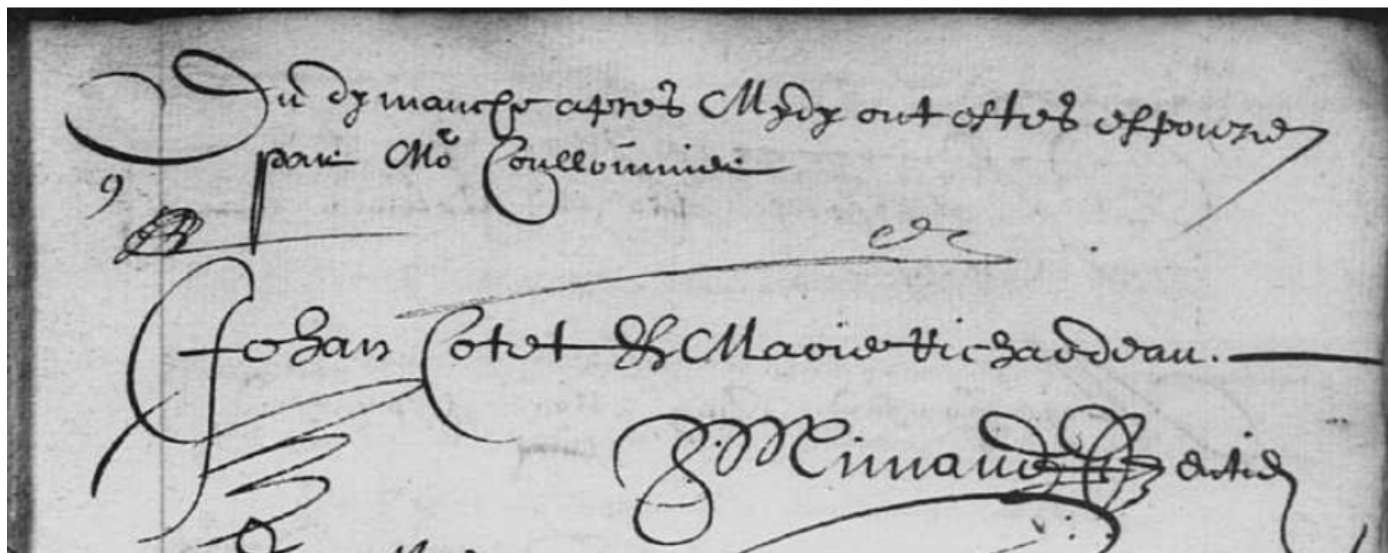 Du dymanche apres Mydy ont estes espouzes
par Mr Coullommier
9
Jehan Cotet & Marie Richardeau.
Minnaud